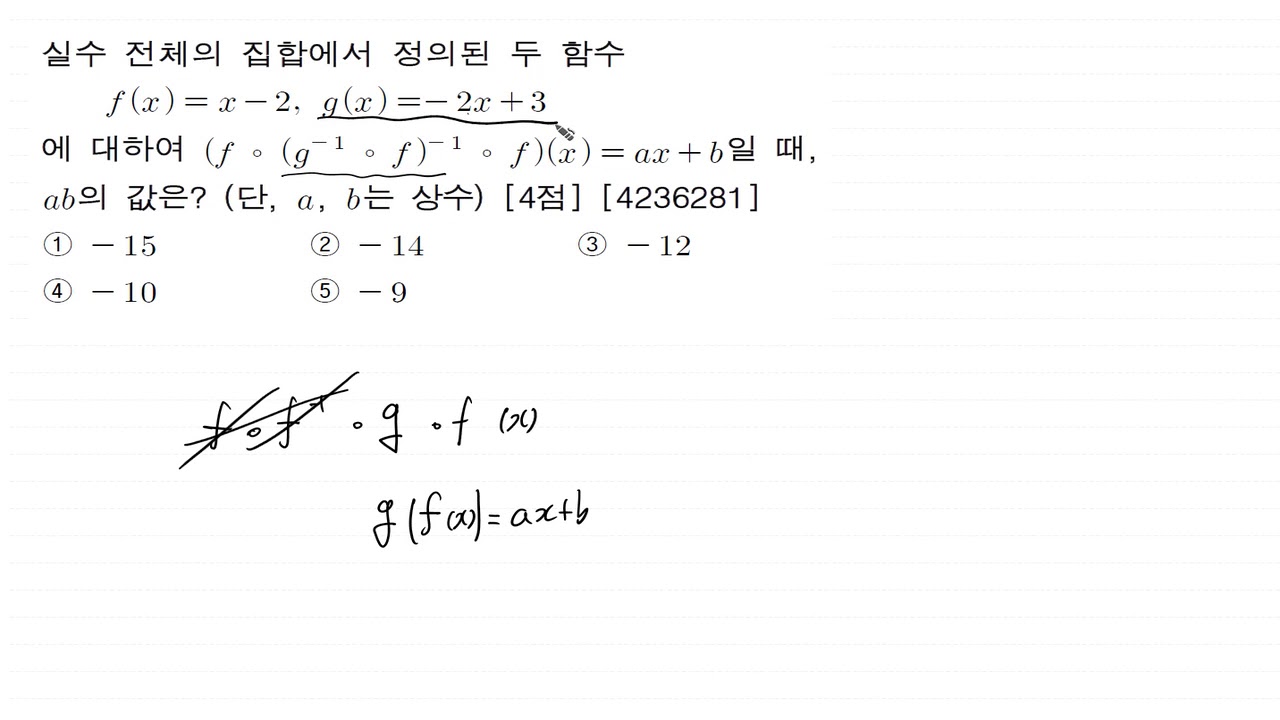 실수 전체의 집합에서 정의된 두 함수
f(x) = x − 2, g(x) = − 2x + 3
에 대하여 (f ∘ (g⁻¹ ∘ f)⁻¹ ∘ f)(x) = ax + b일 때,
ab의 값은? (단, a, b는 상수) [4점] [4236281]
① − 15 ② − 14 ③ − 12
④ − 10 ⑤ − 9
f ∘ f⁻¹ ∘ g ∘ f (x)
g(f(x)) = ax+b